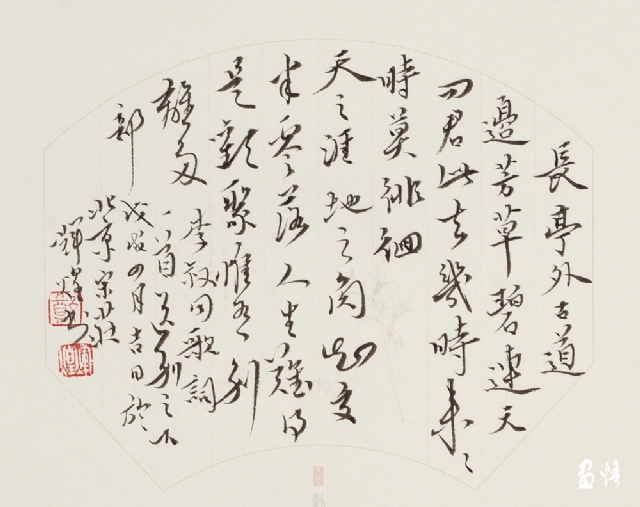 長亭外古道
邊芳草碧連天
問君此去幾時來來
時莫徘徊
天之涯地之角知交
半零落人生難得
是歡聚惟有別
離多
李叔同歌詞
一首送別之不
部
戊戌四月吉日於
北京宋莊
輝煌書